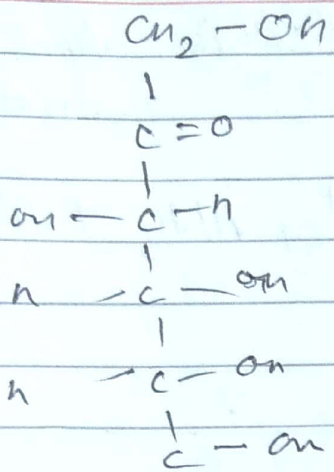 CH₂ - OH
|
C = O
|
OH - C - H
|
H - C - OH
|
H - C - OH
|
C - OH